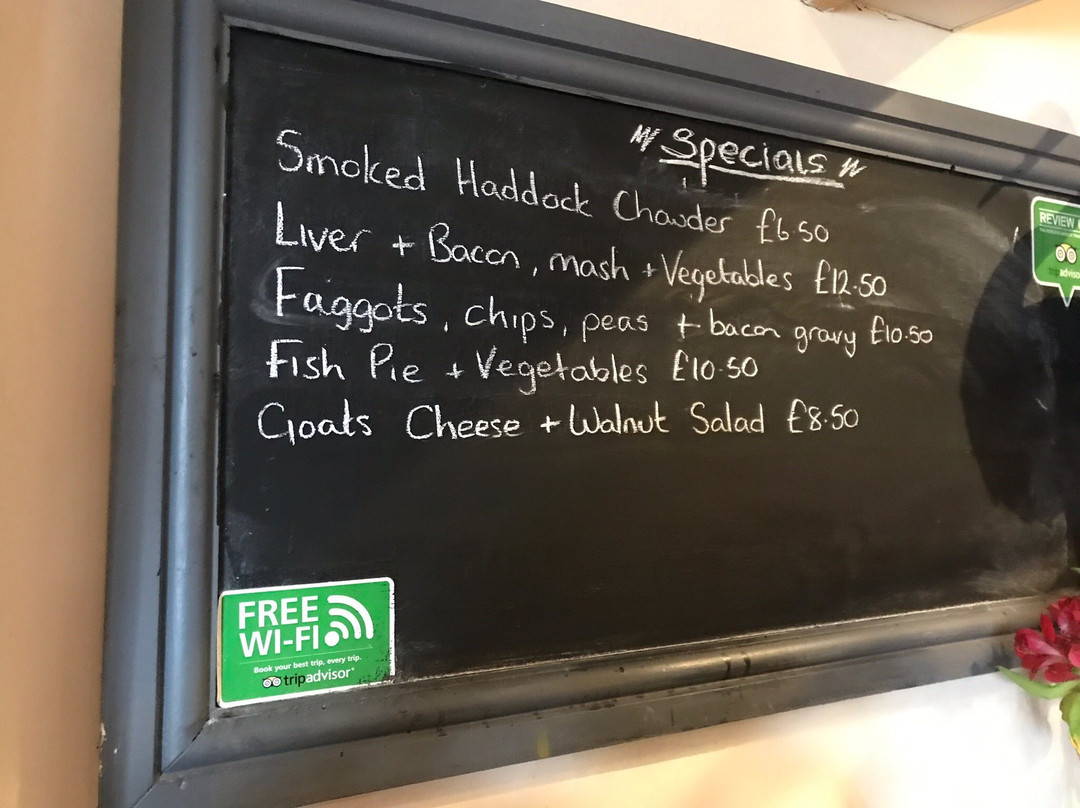 Specials
Smoked Haddock Chowder £6.50
Liver + Bacon, mash + Vegetables £12.50
Faggots, chips, peas + bacon gravy £10.50
Fish Pie + Vegetables £10.50
Goats Cheese + Walnut Salad £8.50
REVIEW
FREE
WI-FI
Book your best trip, every trip.
tripadvisor